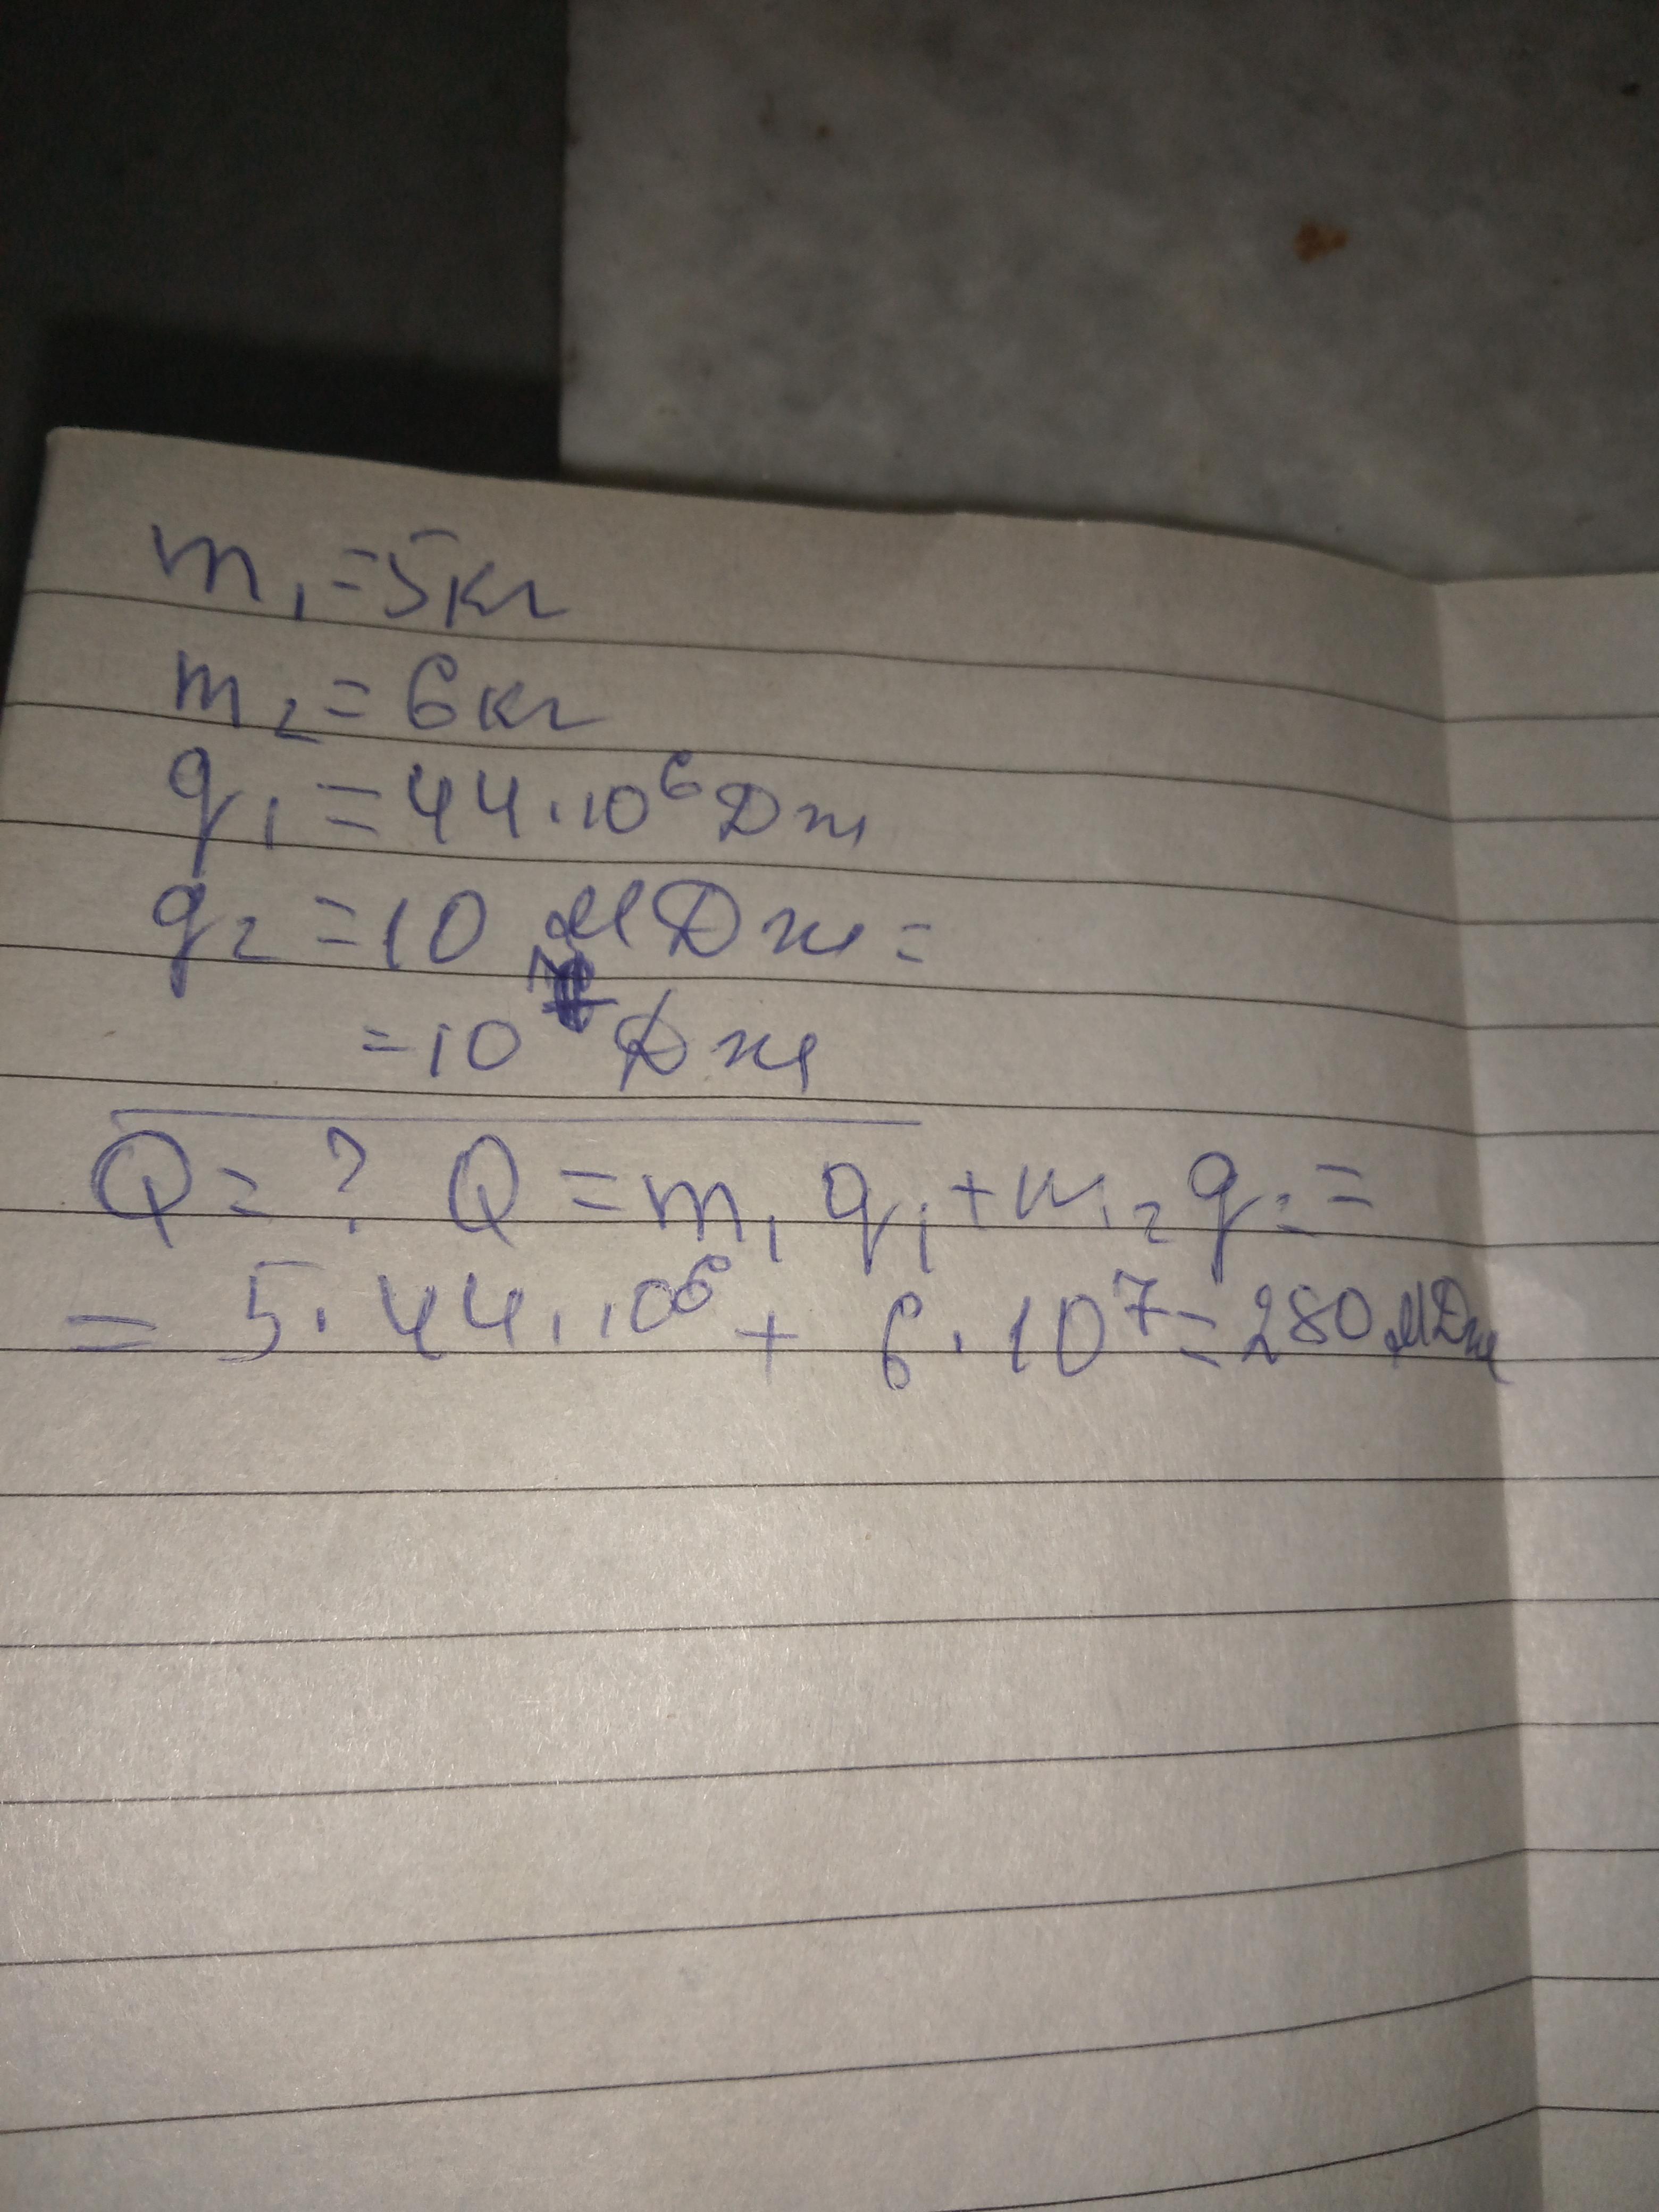 m₁=5кг
m₂=6кг
q₁=44·10⁶Дж
q₂=10 МДж=
=10⁷ Дж
Q=? Q=m₁q₁+m₂q₂=
= 5·44·10⁶ + 6·10⁷=280МДж